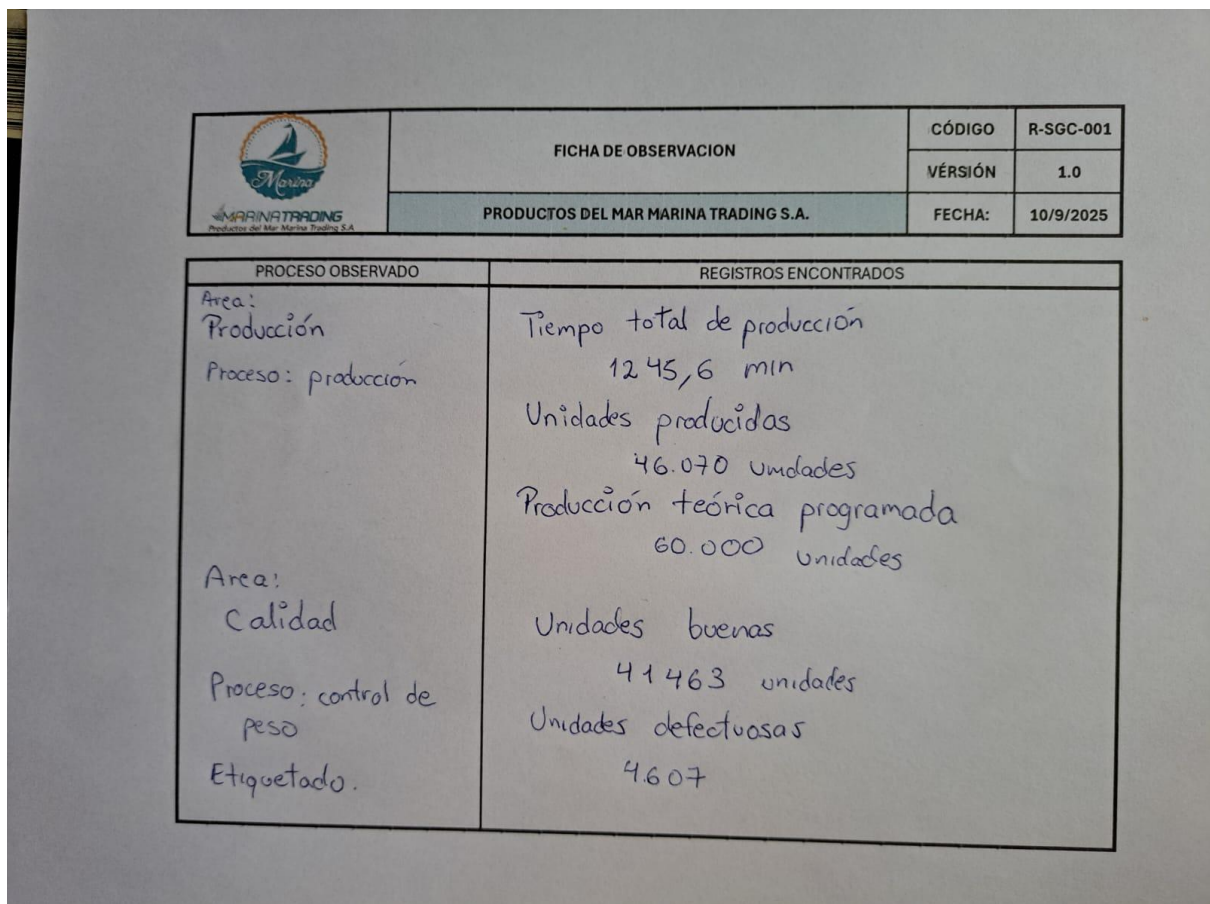 Marina
MARINATRADING
Productos del Mar Marina Trading S.A
FICHA DE OBSERVACION
CÓDIGO R-SGC-001
VÉRSIÓN 1.0
PRODUCTOS DEL MAR MARINA TRADING S.A.
FECHA: 10/9/2025
PROCESO OBSERVADO
REGISTROS ENCONTRADOS
Area:
Producción
Proceso: producción
Tiempo total de producción
1245,6 min
Unidades producidas
46.070 unidades
Producción teórica programada
60.000 unidades
Area:
Calidad
Proceso: control de
peso
Etiquetado.
Unidades buenas
41463 unidades
Unidades defectuosas
4.607